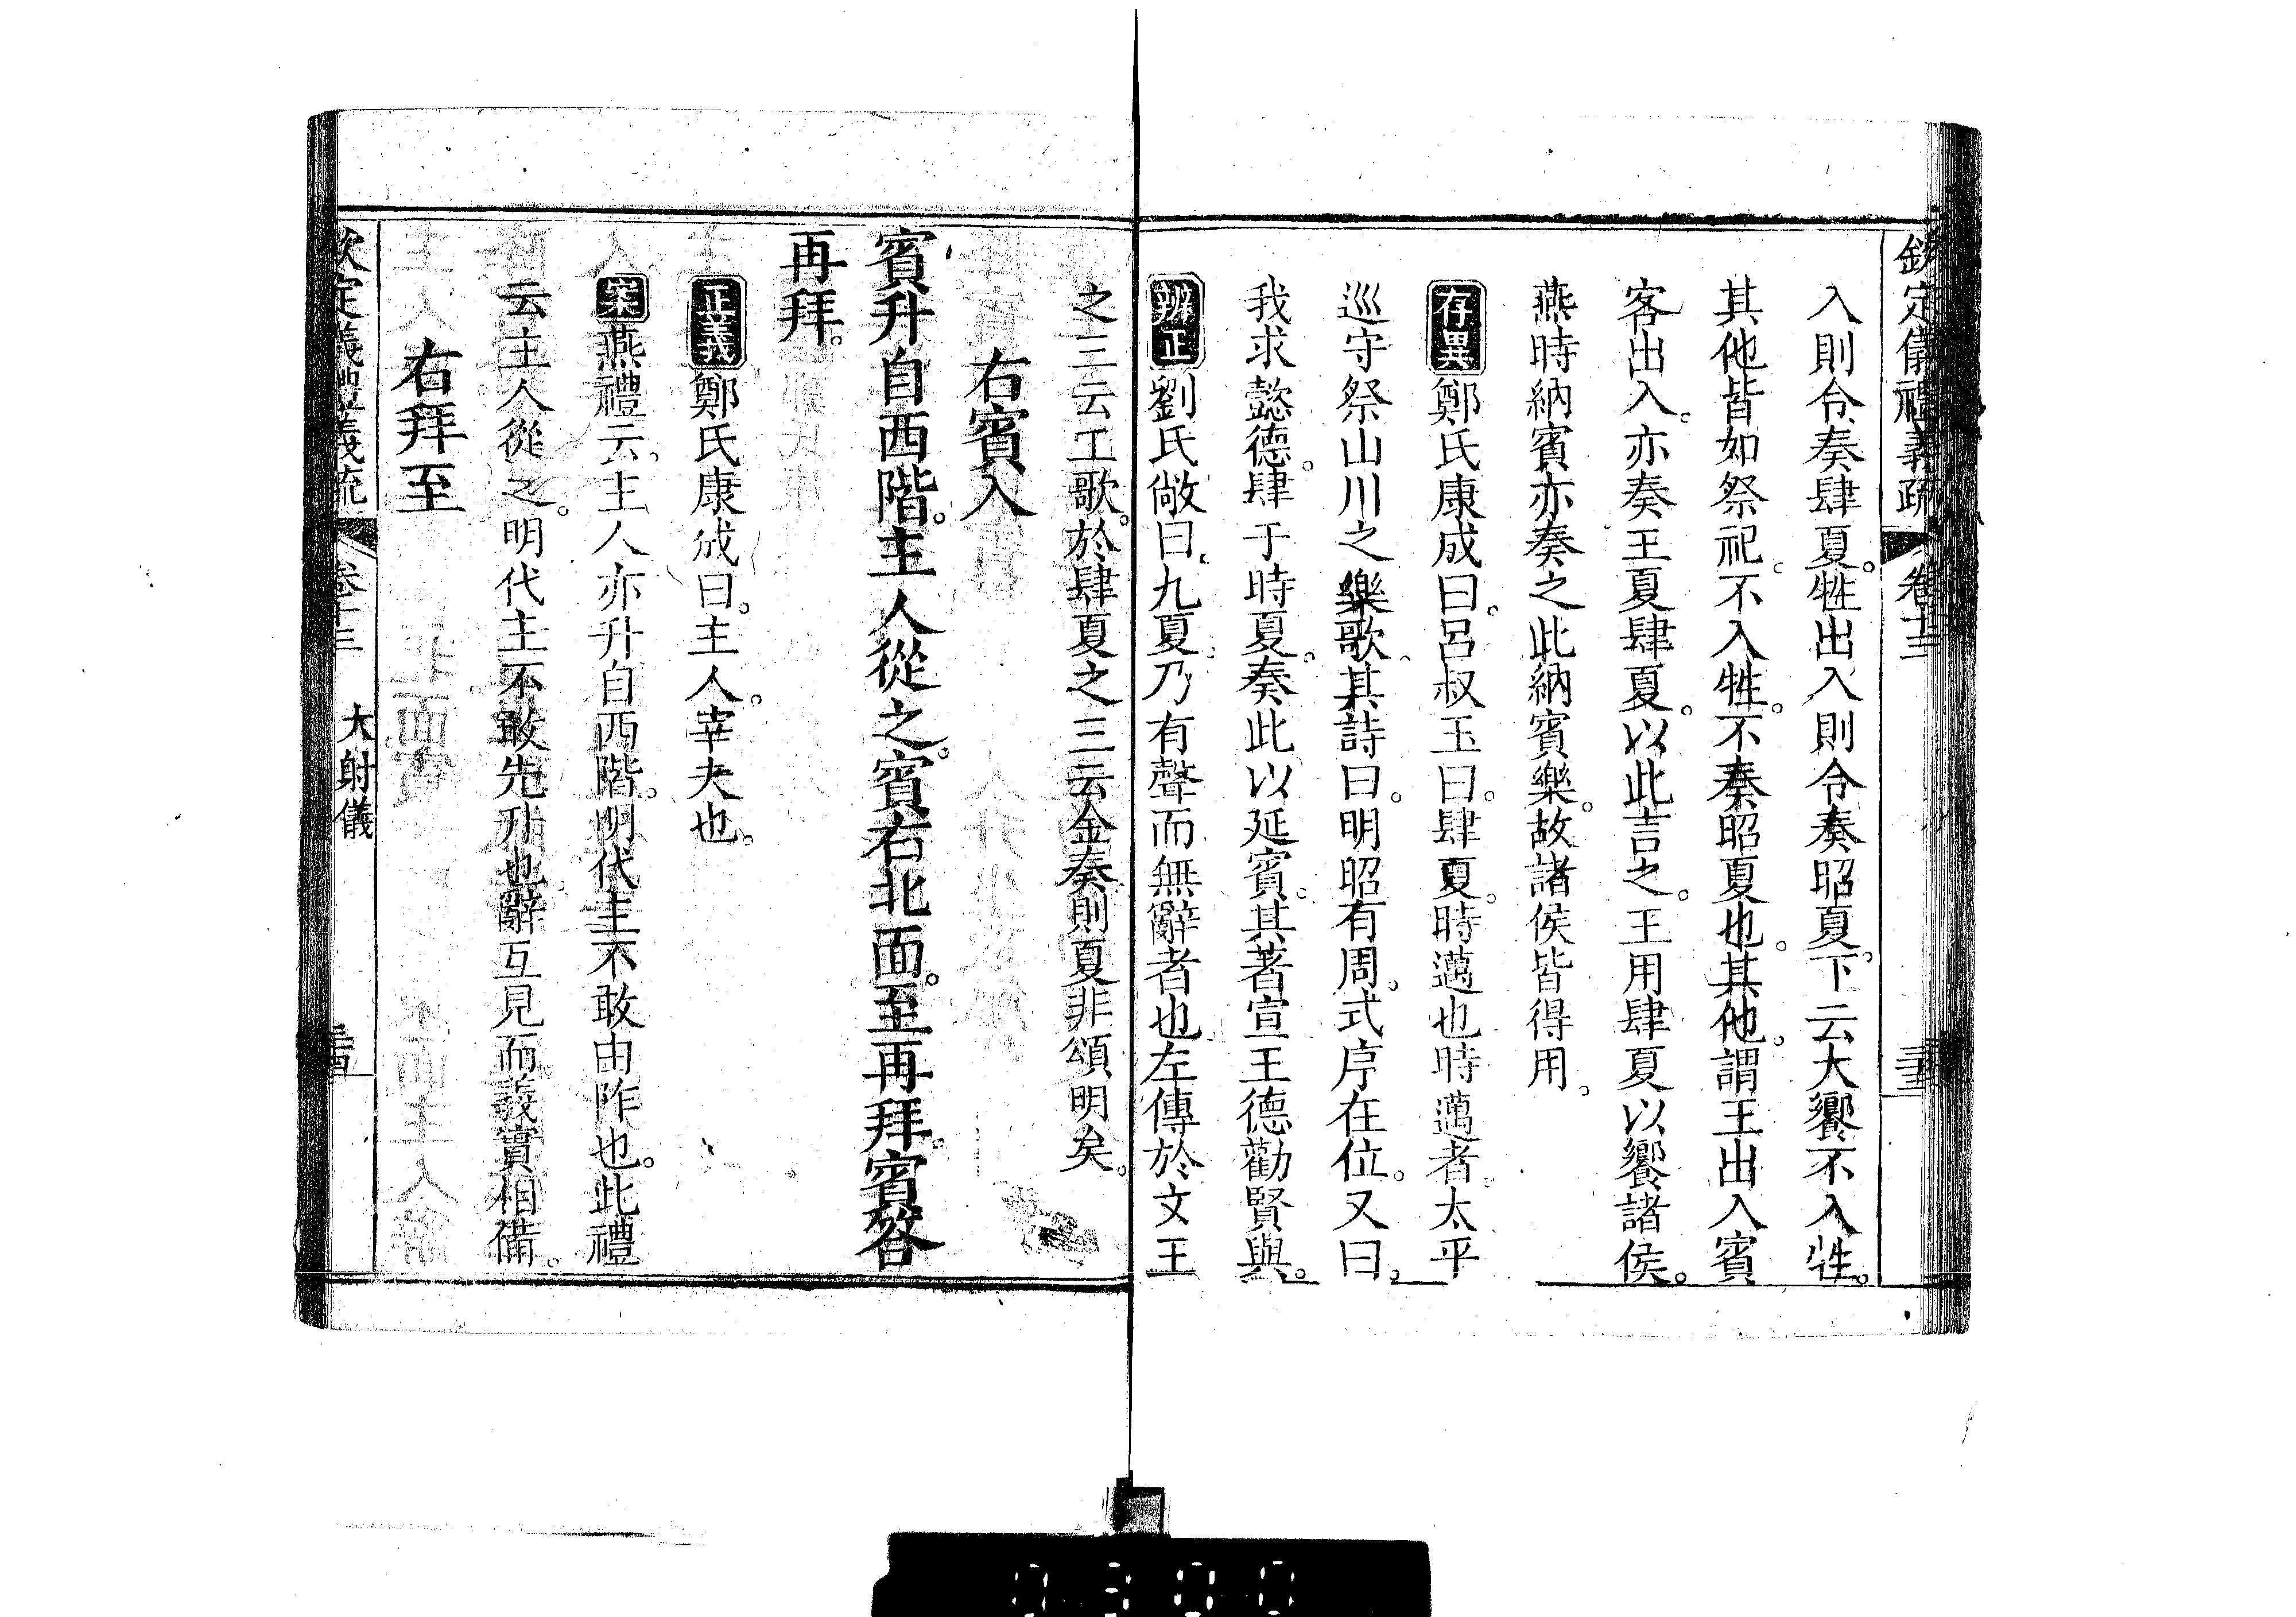 欽定儀禮義疏 卷十三 三十三
入則令奏肆夏。牲出入則令奏昭夏。下云大饗不入牲。
其他皆如祭祀。不入牲。不奏昭夏也。其他。謂王出入賓
客出入。亦奏王夏肆夏。以此言之。王用肆夏以饗諸侯。
燕時納賓亦奏之此納賓樂。故諸侯皆得用。
存異鄭氏康成曰。呂叔玉曰。肆夏。時邁也時邁者。太平
巡守祭山川之樂歌。其詩曰。明昭有周。式序在位。又曰。
我求懿德。肆于時夏。奏此以延賓。其著宣王德勸賢與。
辨正劉氏敞曰。九夏。乃有聲而無辭者也。左傳於文王
之三云工歌。於肆夏之三云金奏則夏非頌明矣。
右賓入
賓升自西階。主人從之。賓右北面。至再拜。賓答
再拜。
正義鄭氏康成曰。主人。宰夫也。
案燕禮云。主人亦升自西階。明代主不敢由阼也。此禮
云主人從之。明代主不敢先升也。辭互見而義實相備。
右拜至
欽定儀禮義疏 卷十三 大射儀 三十四
0300